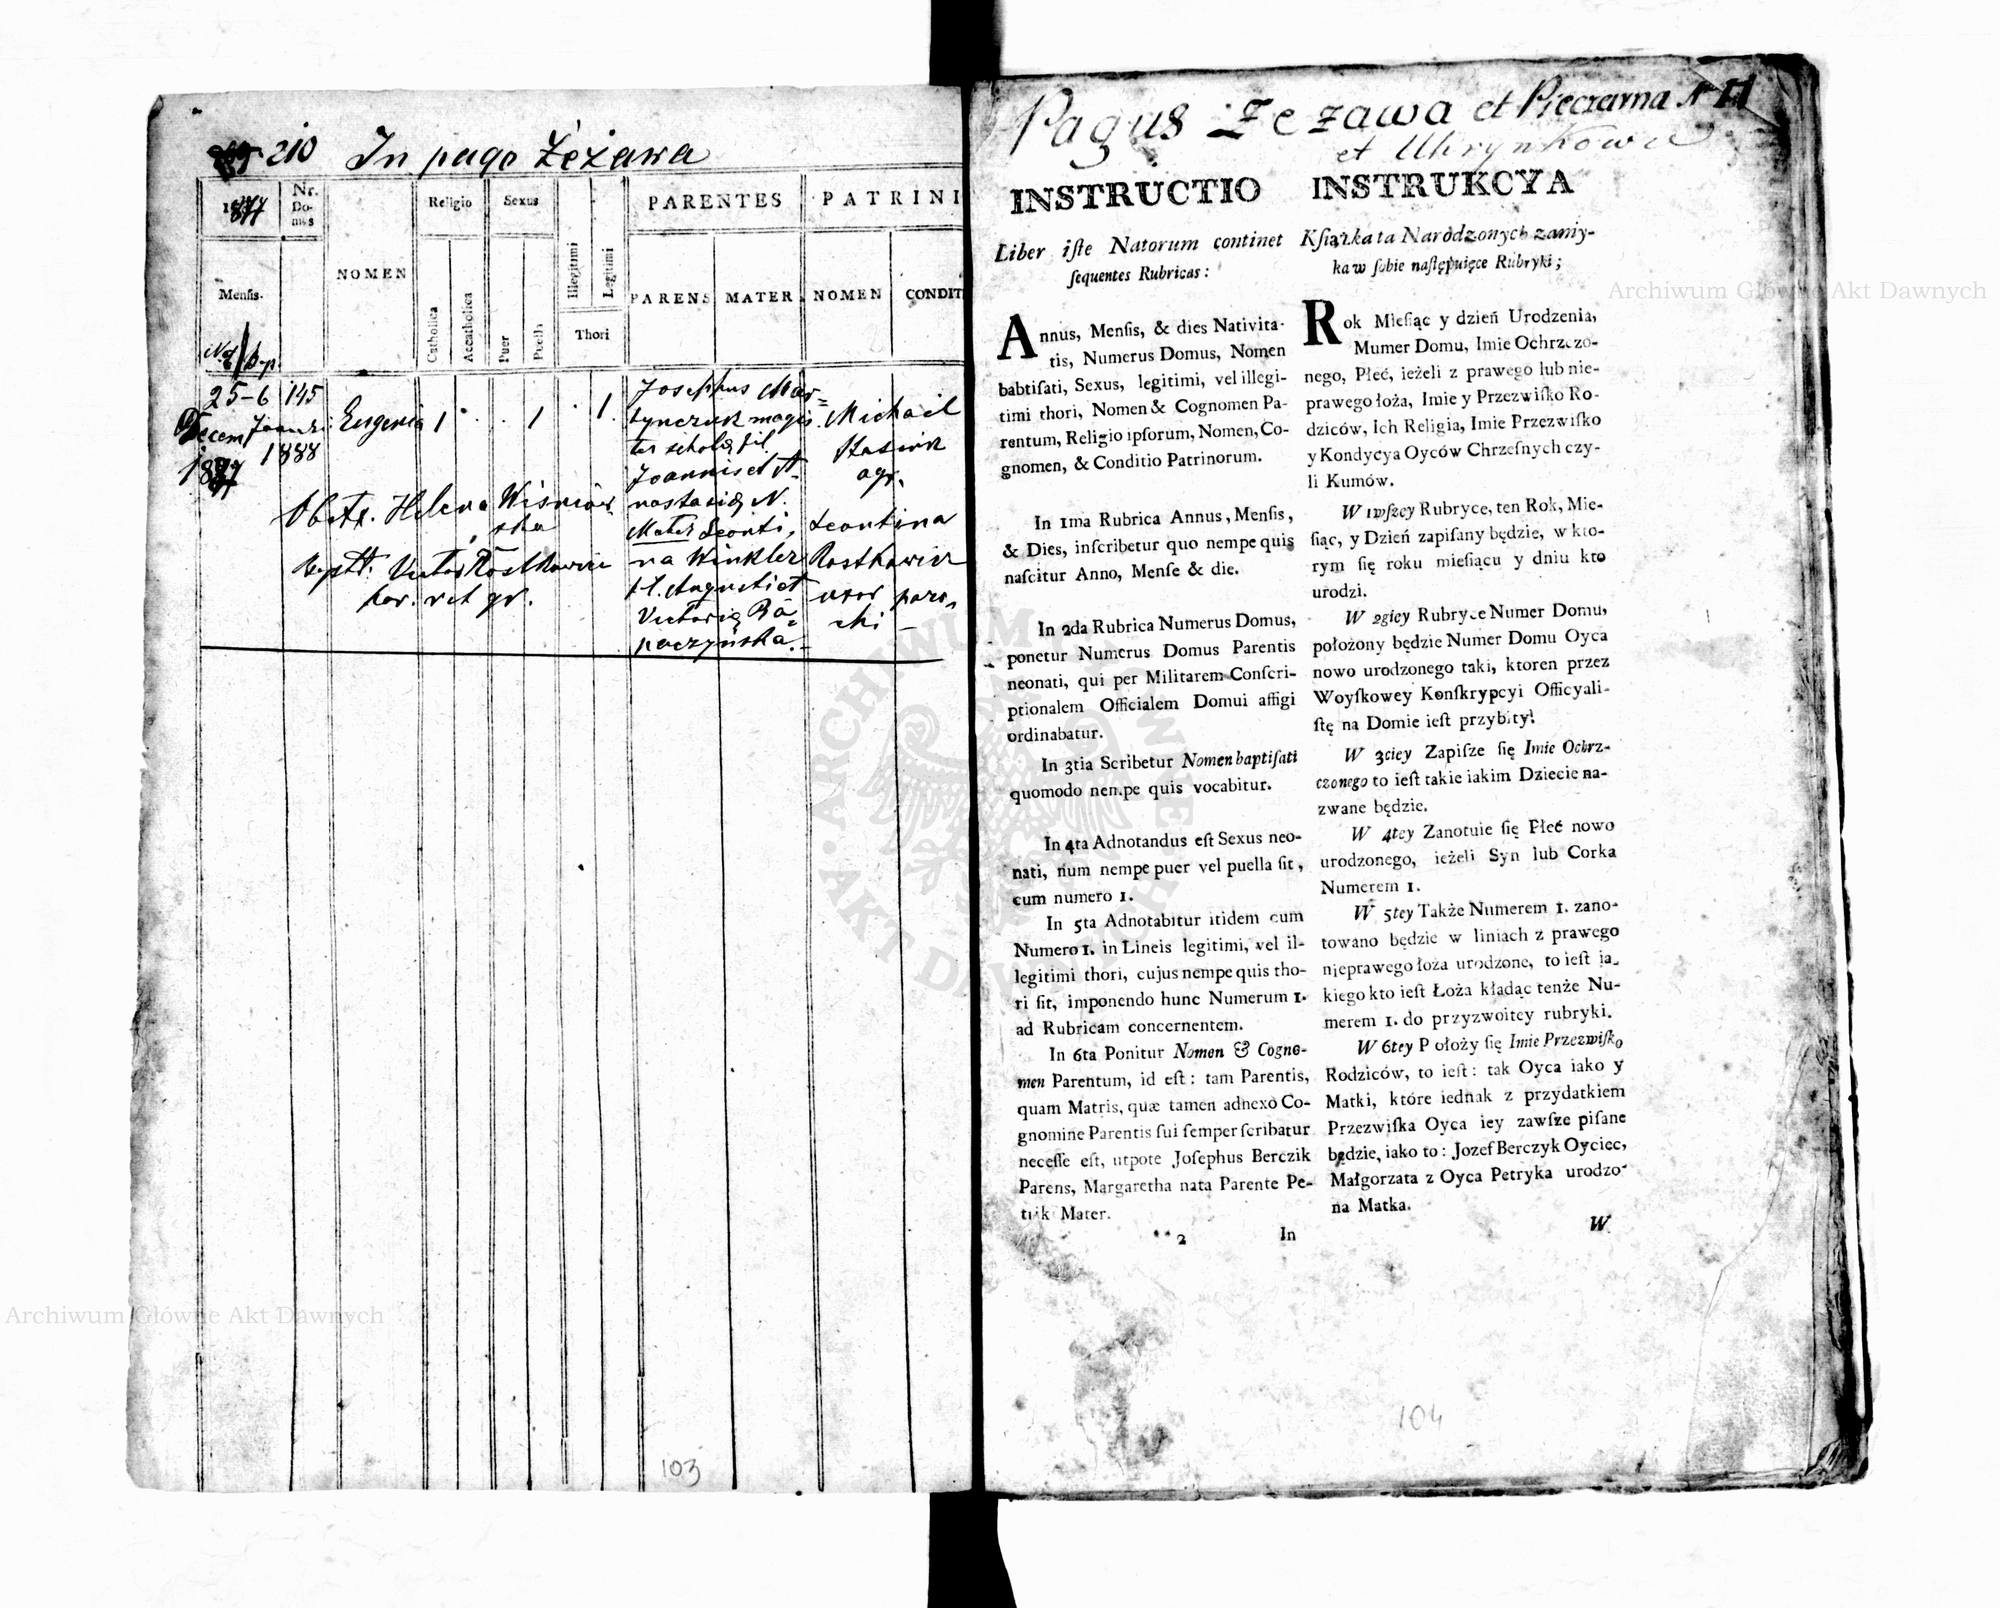 210 In pago Żeżawa
1877
Nr. Domus
NOMEN
Religio
Sexus
PARENTES
PATRINI
Mensis.
Catholica
Accatholica
Puer
Puella
Illegitimi
Legitimi
Thori
PARENS
MATER
NOMEN
CONDIT
25-6 145 Eugenia 1 . . 1 . 1.
Decem Januari
1887 1888
Josephus Mar=
tynczuk magis
ter scholę fil.
Joannis et A-
nastasię N.
Mater Leonti,
na Winkler
fl. Augusti et
Victorię Ba=
paczyńska.-
Michael
Stasiuk
agr.
Leontina
Rostkowicz
uxor paro,
chi -
Obstx. Helena Wiśniow
ska
Baptt. Victor Rostkowicz
par. rit gr.
103
Pagus Zezawa et Pieczarna N II
et Uhrynkowce
INSTRUCTIO
Liber iſte Natorum continet
ſequentes Rubricas:
Annus, Menſis, & dies Nativita-
tis, Numerus Domus, Nomen
babtiſati, Sexus, legitimi, vel illegi-
timi thori, Nomen & Cognomen Pa-
rentum, Religio ipſorum, Nomen, Co-
gnomen, & Conditio Patrinorum.
In 1ma Rubrica Annus, Menſis,
& Dies, inſcribetur quo nempe quis
naſcitur Anno, Menſe & die.
In 2da Rubrica Numerus Domus,
ponetur Numerus Domus Parentis
neonati, qui per Militarem Conſcri-
ptionalem Officialem Domui affigi
ordinabatur.
In 3tia Scribetur Nomen baptiſati
quomodo nempe quis vocabitur.
In 4ta Adnotandus eſt Sexus neo-
nati, num nempe puer vel puella ſit,
cum numero 1.
In 5ta Adnotabitur itidem cum
Numero 1. in Lineis legitimi, vel il-
legitimi thori, cujus nempe quis tho-
ri ſit, imponendo hunc Numerum 1.
ad Rubricam concernentem.
In 6ta Ponitur Nomen & Cogno-
men Parentum, id eſt: tam Parentis,
quam Matris, quæ tamen adnexo Co-
gnomine Parentis ſui ſemper ſcribatur
neceſſe eſt, utpote Joſephus Berczik
Parens, Margaretha nata Parente Pe-
trik Mater.
**2 In
INSTRUKCYA
Kſiążka ta Narodzonych zamy-
ka w ſobie naſtępuięce Rubryki;
Rok Mieſiąc y dzień Urodzenia,
Mumer Domu, Imie Ochrzczo-
nego, Płeć, ieżeli z prawego lub nie-
prawego łoża, Imie y Przezwiſko Ro-
dziców, Ich Religia, Imie Przezwiſko
y Kondycya Oyców Chrzeſnych czy-
li Kumów.
W 1wſzey Rubryce, ten Rok, Mie-
ſiąc, y Dzień zapiſany będzie, w kto-
rym ſię roku mieſiącu y dniu kto
urodzi.
W 2giey Rubryce Numer Domu,
położony będzie Numer Domu Oyca
nowo urodzonego taki, ktoren przez
Woyſkowey Konſkrypcyi Officyali-
ſtę na Domie ieſt przybity!
W 3ciey Zapiſze ſię Imie Ochrz-
czonego to ieſt takie iakim Dziecie na-
zwane będzie.
W 4tey Zanotuie ſię Płeć nowo
urodzonego, ieżeli Syn lub Corka
Numerem 1.
W 5tey Także Numerem 1. zano-
towano będzie w liniach z prawego
nieprawego łoża urodzone, to ieſt ja-
kiego kto ieſt Łoża kładąc tenże Nu-
merem 1. do przyzwoitey rubryki.
W 6tey Położy ſię Imie Przezwiſko
Rodziców, to ieſt: tak Oyca iako y
Matki, które iednak z przydatkiem
Przezwiſka Oyca iey zawſze piſane
będzie, iako to: Jozef Berczyk Oyciec,
Małgorzata z Oyca Petryka urodzo-
na Matka.
W
104
Archiwum Główne Akt Dawnych
Archiwum Główne Akt Dawnych
ARCHIWUM GŁÓWNE AKT DAWNYCH